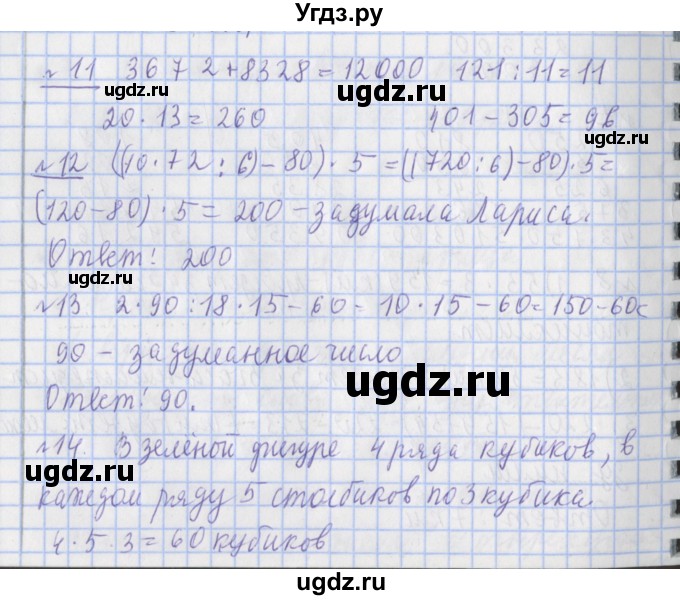 Угдз.ру
№11 3672+8328=12000 121:11=11
ugdz.ru ugdz.ru ugdz.ru
20·13=260 401-305=96
№12 ((10·72:6)-80)·5=((720:6)-80)·5=
(120-80)·5=200-задумала Лариса.
Ответ! 200
ugdz.ru ugdz.ru ugdz.ru
№13 2·90:18·15-60=10·15-60=150-60=
90-задуманное число
ugdz.ru ugdz.ru
Ответ! 90.
№14. В зелёной фигуре 4 ряда кубиков, в
ugdz.ru ugdz.ru ugdz.ru
каждом ряду 5 столбиков по 3 кубика.
4·5·3=60 кубиков
ugdz.ru